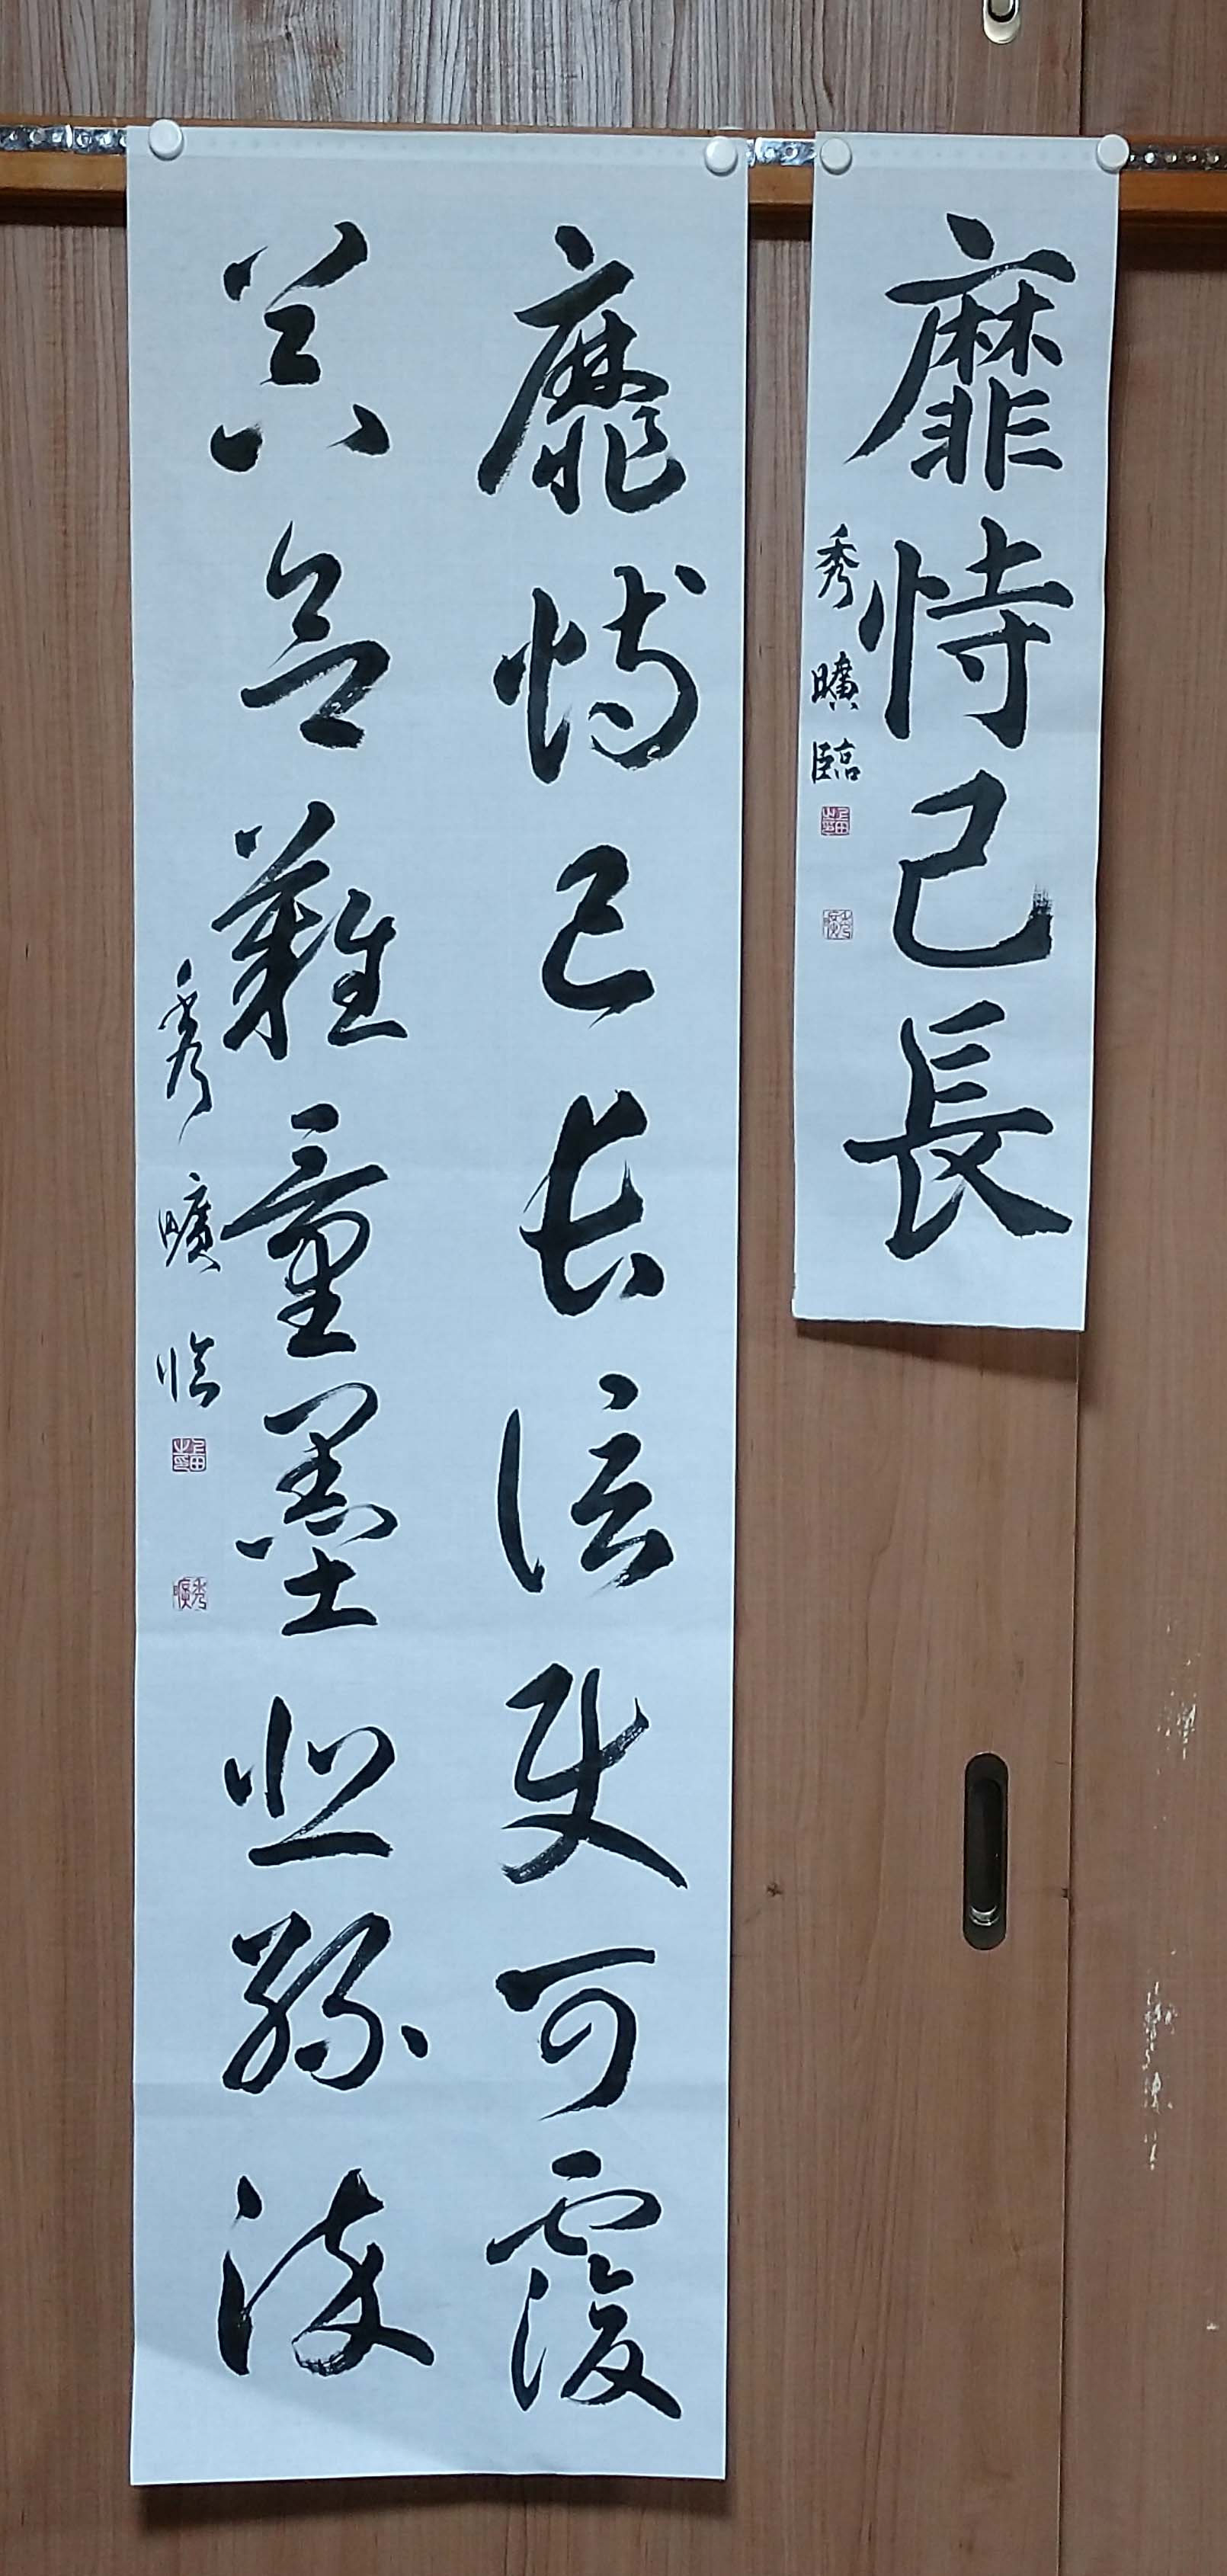 靡恃己長
秀曠臨
靡恃己長信使可覆
器欲難量墨悲絲染
秀曠臨